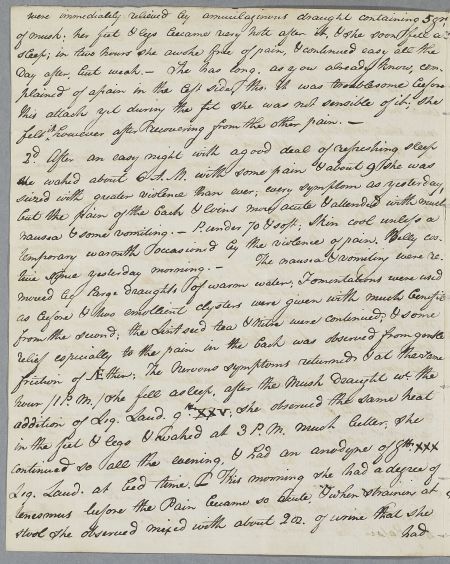 were immediately relieved by a mucilaginous draught containing 5 gr.
of musk; her feet & legs became very hot after it, & she soon fell a=
sleep; in two hours she awoke free of pain, & continued easy all the
day after, but weak. — She has long, as you already know, com=
plained of a pain in the left side, tho. it was troublesome before
this attack yet during the fit she was not sensible of it; she
felt it however after recovering from the other pain. —
2d. After an easy night with a good deal of refreshing sleep
she waked about 6 A.M. with some pain & about 9 she was
seized with greater violence than ever; every symptom as yesterday,
but the pain of the back & loins more acute & attended with much
nausea & some vomiting. — P. under 70 & soft; skin cool unless a
temporary warmth occasioned by the violence of pain. Belly cos=
tive since yesterday morning. — The nausea & vomiting were re=
moved by large draughts of warm water, Fomentations were used
as before & two emollient clysters were given with much benefit
from the second; the Lintseed tea & Nitre were continued; & some
relief especially to the pain in the back was observed from gentle
friction of Æther; The Nervous symptoms returned & at the same
hour (1 P.M.) she fell asleep, after the Musk draught wt. the
addition of Liq. Laud. gtt. XXV, she observed the same heat
in the feet & legs & waked at 3 P.M. much better, she
continued so all the evening, & had an anodyne of gtt. XXX
Liq. Laud. at bed time. This morning she had a degree of
tenesmus before the Pain became so acute, & when straining at
stool she observed mixed with about 2 oz. of urine that she
had